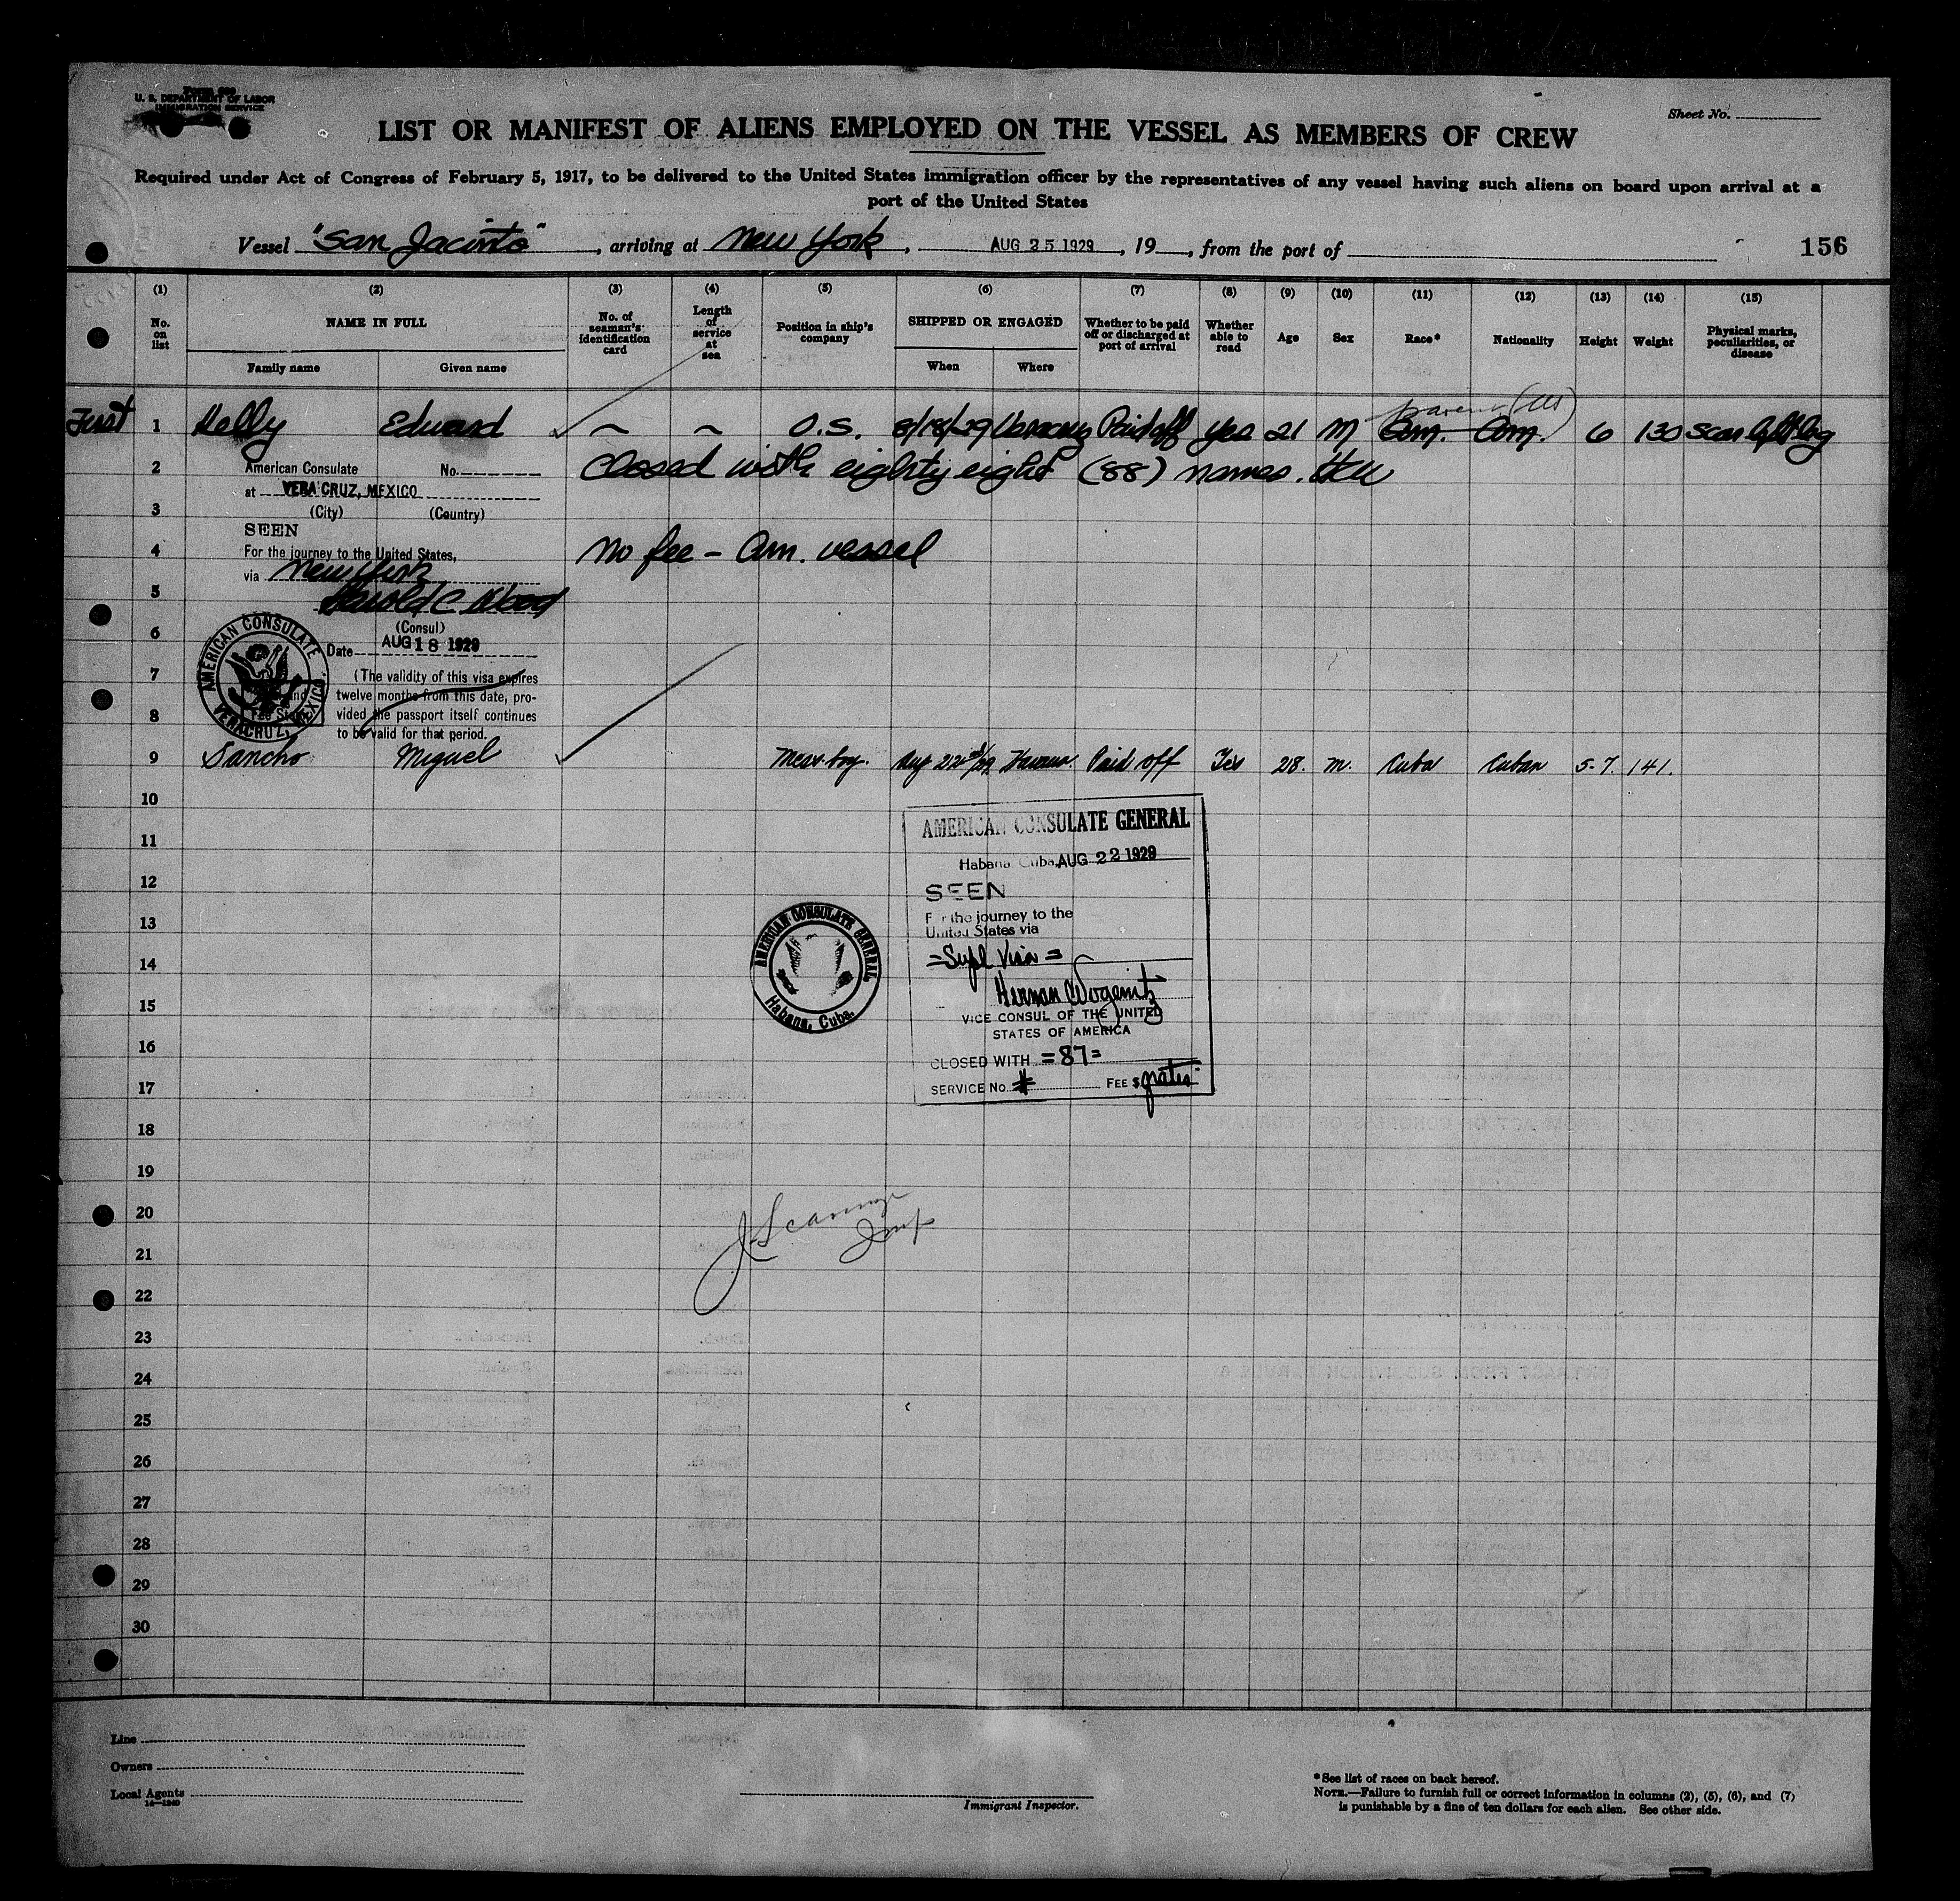 Form 689
U. S. DEPARTMENT OF LABOR
IMMIGRATION SERVICE
Sheet No.
LIST OR MANIFEST OF ALIENS EMPLOYED ON THE VESSEL AS MEMBERS OF CREW
Required under Act of Congress of February 5, 1917, to be delivered to the United States immigration officer by the representatives of any vessel having such aliens on board upon arrival at a
port of the United States
Vessel "San Jacinto", arriving at New York, AUG 25 1929, 19, from the port of
156
(1) (2) (3) (4) (5) (6) (7) (8) (9) (10) (11) (12) (13) (14) (15)
No. on list
NAME IN FULL
Family name
Given name
No. of seaman's identification card
Length of service at sea
Position in ship's company
SHIPPED OR ENGAGED
When
Where
Whether to be paid off or discharged at port of arrival
Whether able to read
Age
Sex
Race*
Nationality
Height
Weight
Physical marks, peculiarities, or disease
First 1 Kelly Edward ~ ~ O.S. 8/18/29 Veracruz Paid off yes 21 M Am. Am. 6 130 Scar left leg
2 Closed with eighty eight (88) names. HCW
American Consulate No.
at VERA CRUZ, MEXICO
(City) (Country)
3
SEEN
4 For the journey to the United States,
No fee - Am. vessel
via New York
5
Harold C Wood
(Consul)
6
Date AUG 18 1929
AMERICAN CONSULATE
VERACRUZ, MEXICO.
7
(The validity of this visa expires
twelve months from this date, pro-
8 vided the passport itself continues
to be valid for that period.
9 Sancho Miguel Mess-boy. Aug 22nd/29. Havana. Paid off Yes 28. M. Cuba Cuban 5-7. 141.
10
AMERICAN CONSULATE GENERAL
11
Habana Cuba, AUG 22 1929
12
SEEN
13
For the journey to the
United States via
14
=Supl Visa=
AMERICAN CONSULATE GENERAL
Habana, Cuba.
15
VICE CONSUL OF THE UNITED
STATES OF AMERICA
16
CLOSED WITH =87=
17
SERVICE No. # FEE $ gratis
18
19
20
Insp
21
22
23
24
25
26
27
28
29
30
Line
Owners
Local Agents
14—1240
Immigrant Inspector.
*See list of races on back hereof.
NOTE.—Failure to furnish full or correct information in columns (2), (5), (6), and (7)
is punishable by a fine of ten dollars for each alien. See other side.